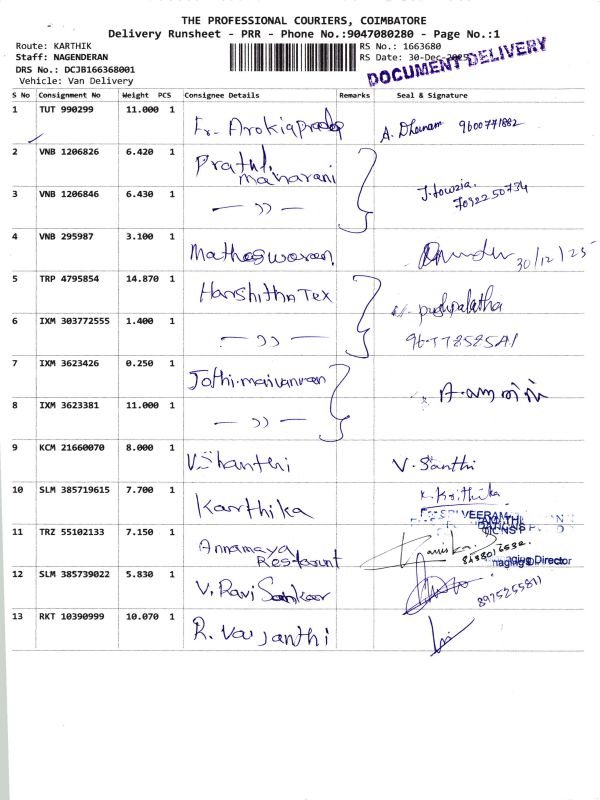 THE PROFESSIONAL COURIERS, COIMBATORE
Delivery Runsheet - PRR - Phone No.:9047080280 - Page No.:1
Route: KARTHIK
RS No.: 1663680
Staff: NAGENDERAN
RS Date: 30-Dec-2025
DOCUMENT DELIVERY
DRS No.: DCJB166368001
Vehicle: Van Delivery
S No Consignment No Weight PCS Consignee Details Remarks Seal & Signature
1 TUT 990299 11.000 1 Er. Arokiapradap A. Dhanam 9600771882
2 VNB 1206826 6.420 1 Prathi maharani
3 VNB 1206846 6.430 1 — )) — 7092250734
4 VNB 295987 3.100 1 Matheswaran 30/12/25
5 TRP 4795854 14.870 1 Harshitha Tex pushpalatha
6 IXM 303772555 1.400 1 — )) —
7 IXM 3623426 0.250 1
8 IXM 3623381 11.000 1 — )) —
9 KCM 21660070 8.000 1 V. Shanthi V. Santhi
10 SLM 385719615 7.700 1 Karthika K. Krithika
11 TRZ 55102133 7.150 1 Annamaya Restarunt
Director
12 SLM 385739022 5.830 1 V. Ravi Sankar 8975255811
13 RKT 10390999 10.070 1 R. Vaijanthi